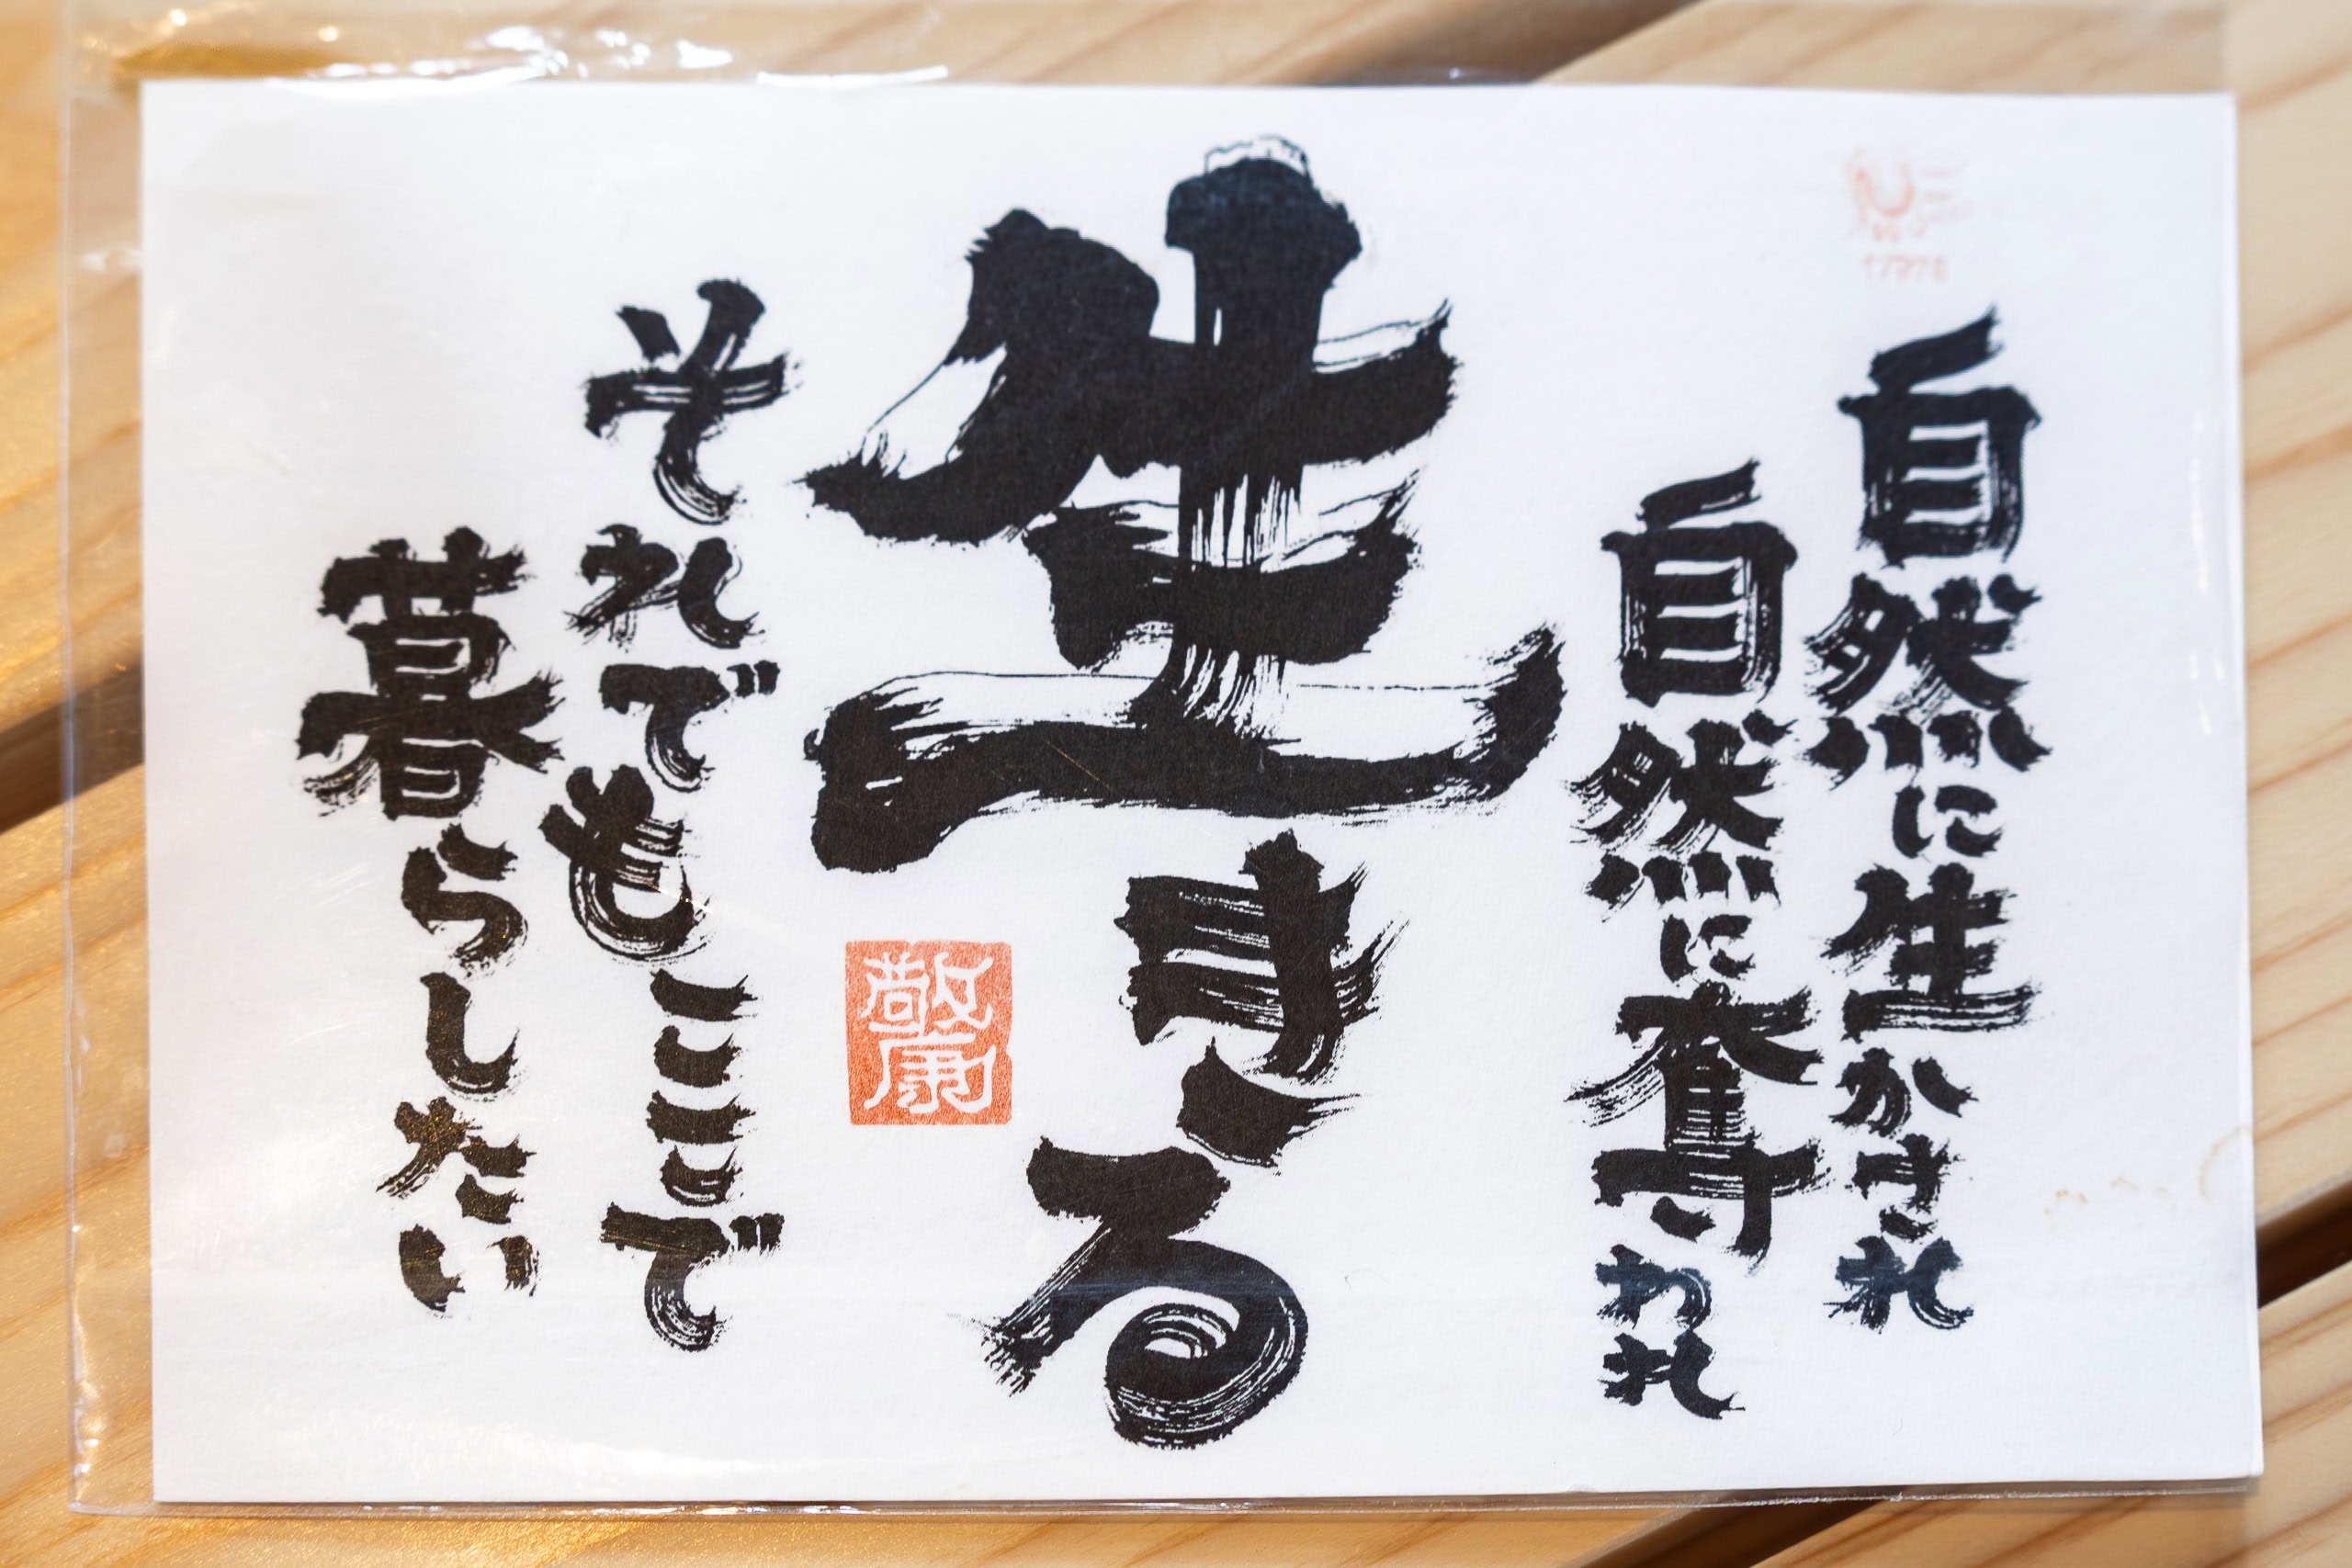 自然に生かされ
自然に奪われ
生きる
それでもここで
暮らしたい